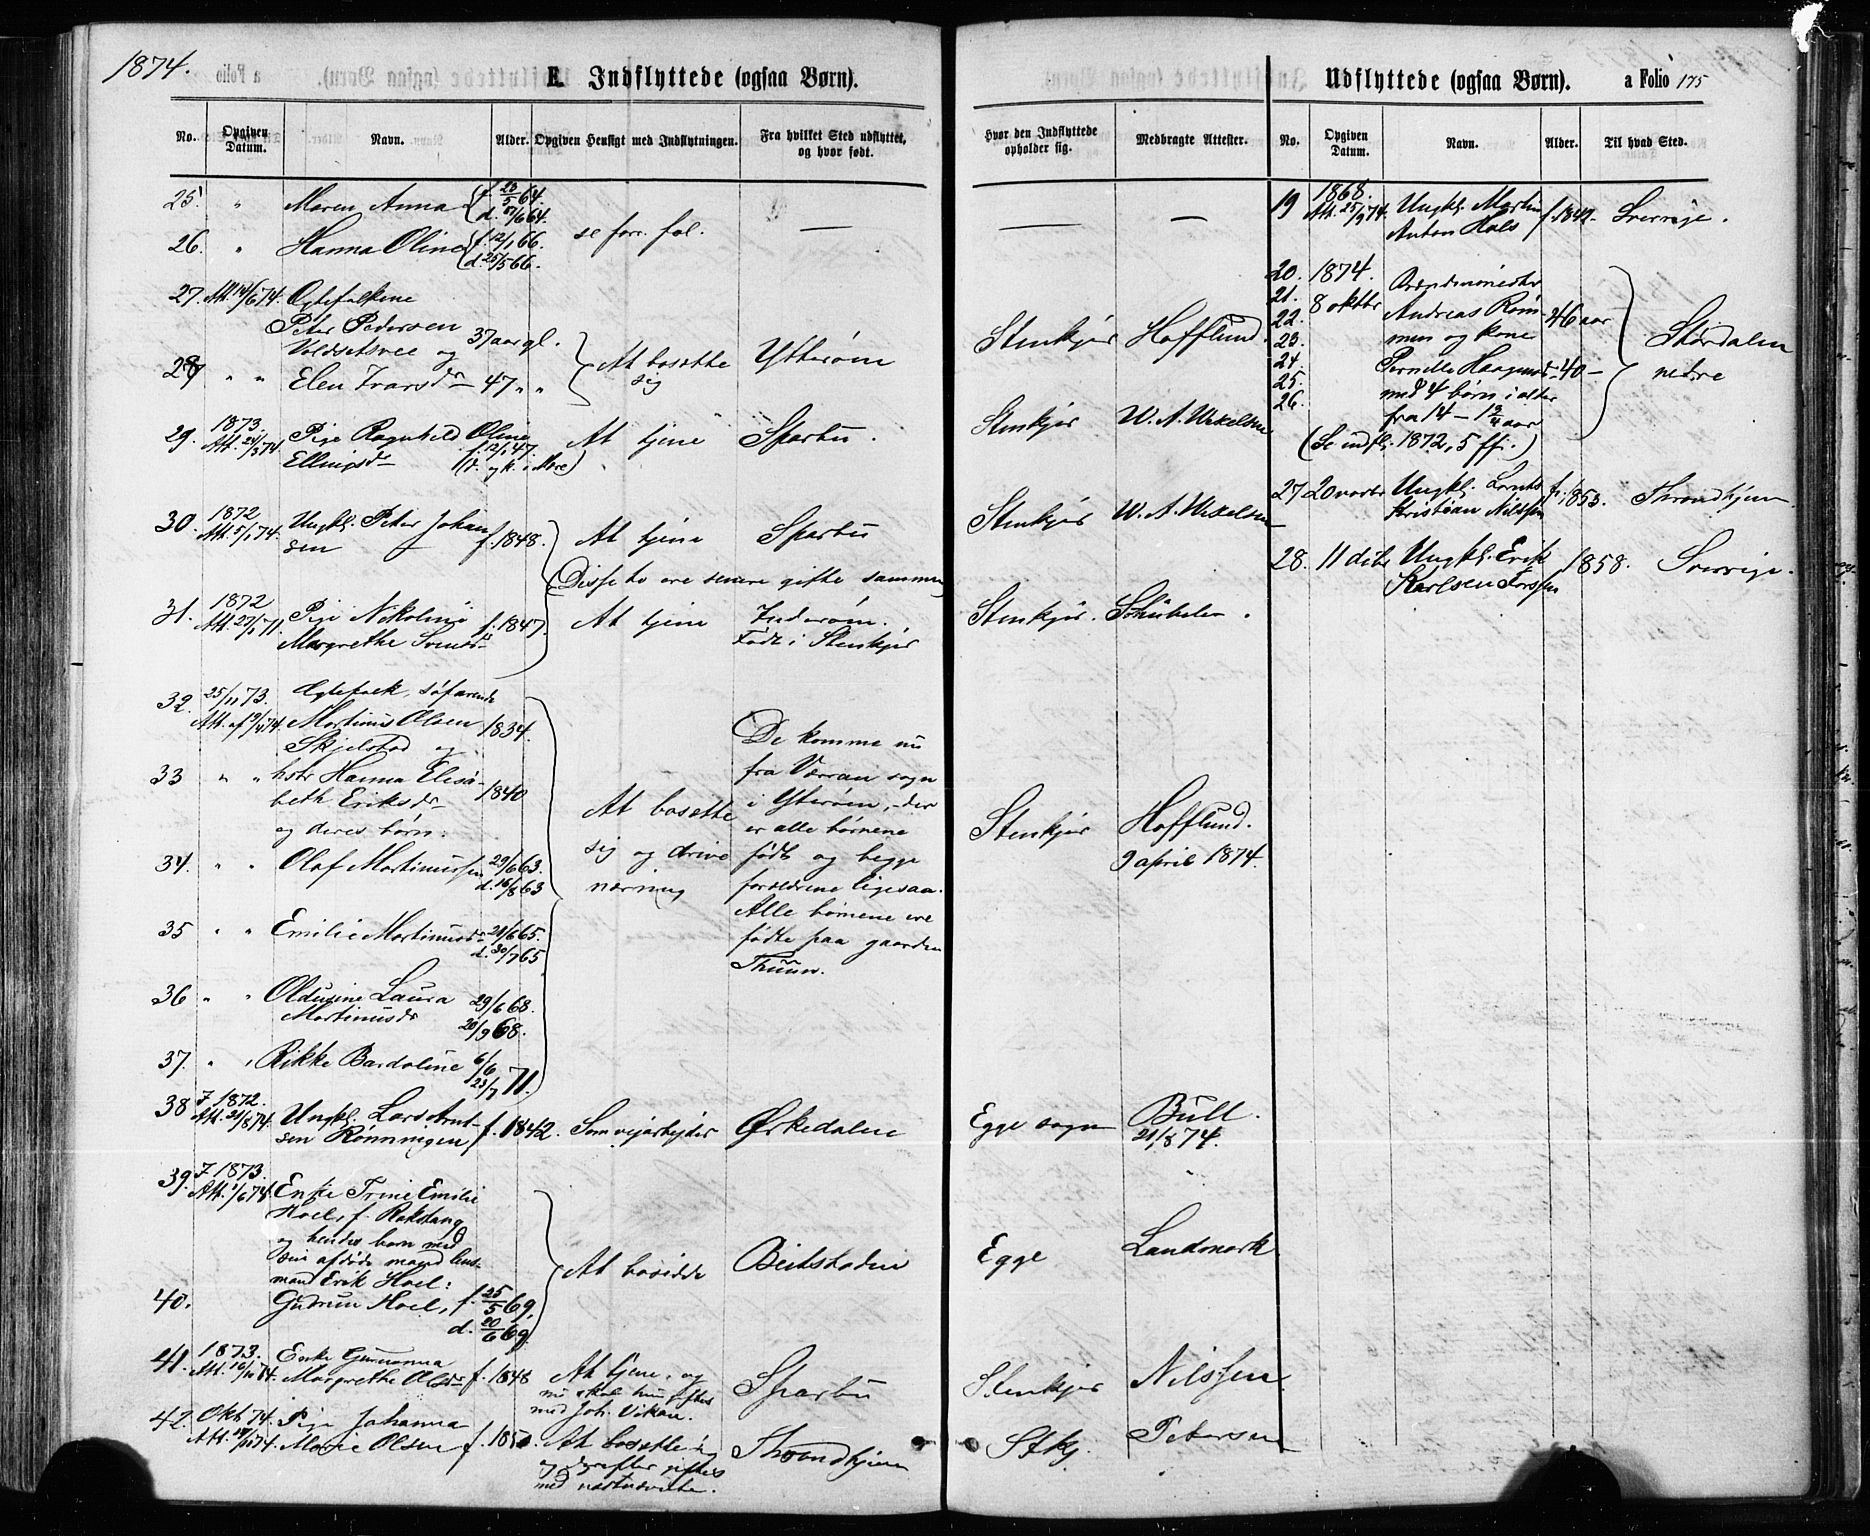 1874.
E. Indflyttede (ogsaa Børn).
No. Opgiven Datum. Navn. Alder. Opgiven Hensigt med Indflytningen. Fra hvilket Sted udflyttet, og hvor født.
Hvor den Indflyttede opholder sig. Medbragte Attester.
25. " Maren Anna f. 23/5 64.
d. 6/64.
se forr. fol. — — —
26. " Hanna Oline f. 12/1 66.
d. 25/5 66.
27. Att. 14/6 74. Ægtefolkene
Peter Pedersen 37 aar gl.
Voldsetsvee og
At bosætte sig Ytterøen Stenkjær Hofflund.
28 " " Elen Ivarsdr 47 " "
29. 1873. Pige Ragnhild Oline
Att. 74. Ellingsdr f. 12/1 47.
At tjene Sparbu. Stenkjær W. A. Wexelsen
30. 1872 Ungkl. Peter Johan-
Att. 5/1 74. sen f. 1848.
At tjene Sparbu Stenkjær W. A. Wexelsen
(Disse to ere senere gifte sammen)
31. 1872 Pige Nikoline
Margrethe Svendsdr f. 1847.
At tjene Inderøen.
Født i Stenkjær
Stenkjær. Schübeler.
32. 25/11 73. Ægtefolk, søfarende
Att. af 9/4 74 Martinus Olsen 1834.
Skjelstad og
33 " " hstr Hanna Elesa-
beth Eriksdr 1840
og deres børn:
34. " " Olaf Martinussen 29/6 63.
d. 16/8 63
35 " " Emilie Martinusdr 29/6 65.
d. 30/7 65
36 " " Oldurine Laura 29/6 68.
Martinusdr 20/9 68.
37. " " Rikke Bardoline 6/6
23/7 71.
At bosætte
sig og drive
næring
De komme nu
fra Værran sogn
i Ytterøen, der
er alle børnene
født og begge
forældrene ligesaa.
Alle børnene ere
fødte paa gaarden
Thuun.
Stenkjær Hofflund.
9 april 1874.
38 F 1872. Ungkl. Lars Arnt-
Att. 21/8 74. sen Rønningen f. 1842.
Som vejarbejder Ørkedalen Egge sogn Bull.
21/8 74.
39. F 1873. Enke Trine Emilie
Att. 1/6 74. Hoel, f. Rokstang
og hendes barn med
sin afdøde mand lens-
mand Erik Hoel:
At bosidde Beitstaden Egge Landmark
40. Gudrun Hoel, f. 25/5 69,
d. 20/6 69.
41. 1873. Enke Gunanna
Att. 16/10 74. Margrethe Olsdr f. 1848
At tjene, og
nu skal hun giftes
med Joh. Vikan.
Sparbu Stenkjær Nilssen.
42. Okt 74. Pige Johanna
Marie Olsen f. 1850.
At bosætte sig
og derefter giftes
med
Throndhjem Stkj. Petersen
Udflyttede (ogsaa Børn). a Folio 175
No. Opgiven Datum. Navn. Alder. Til hvad Sted.
19 1868. Ungkl. Martin
Att. 25/9 74. Anton Hals f. 1842. Sverrige.
20. 1874.
21. 8 oktbr Andreas Røm-
22. men og kone 46 aar
23.
24. Pernille Haagensdr 40 —
25. med 4 børn i alder
26. fra 14 — aar
Størdalen
nedre
(Se indfl. 1872, 5 ff.)
27 20 novbr Ungkl. Lorents
Kristian Nilssen f. 1853. Throndhjem
28. 11 dcbr Ungkl. Erik
Karlsen Forssen 1858. Sverrige.